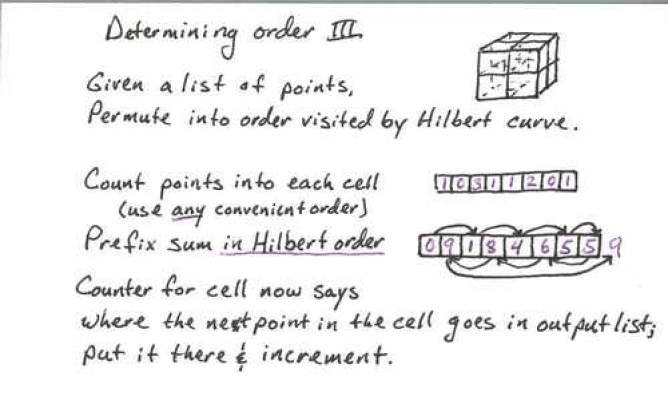 Determining order III.
Given a list of points,
Permute into order visited by Hilbert curve.
Count points into each cell
1 0 3 1 1 2 0 1
(use any convenient order)
Prefix sum in Hilbert order
0 9 1 8 4 6 5 5 9
Counter for cell now says
where the next point in the cell goes in output list;
put it there & increment.